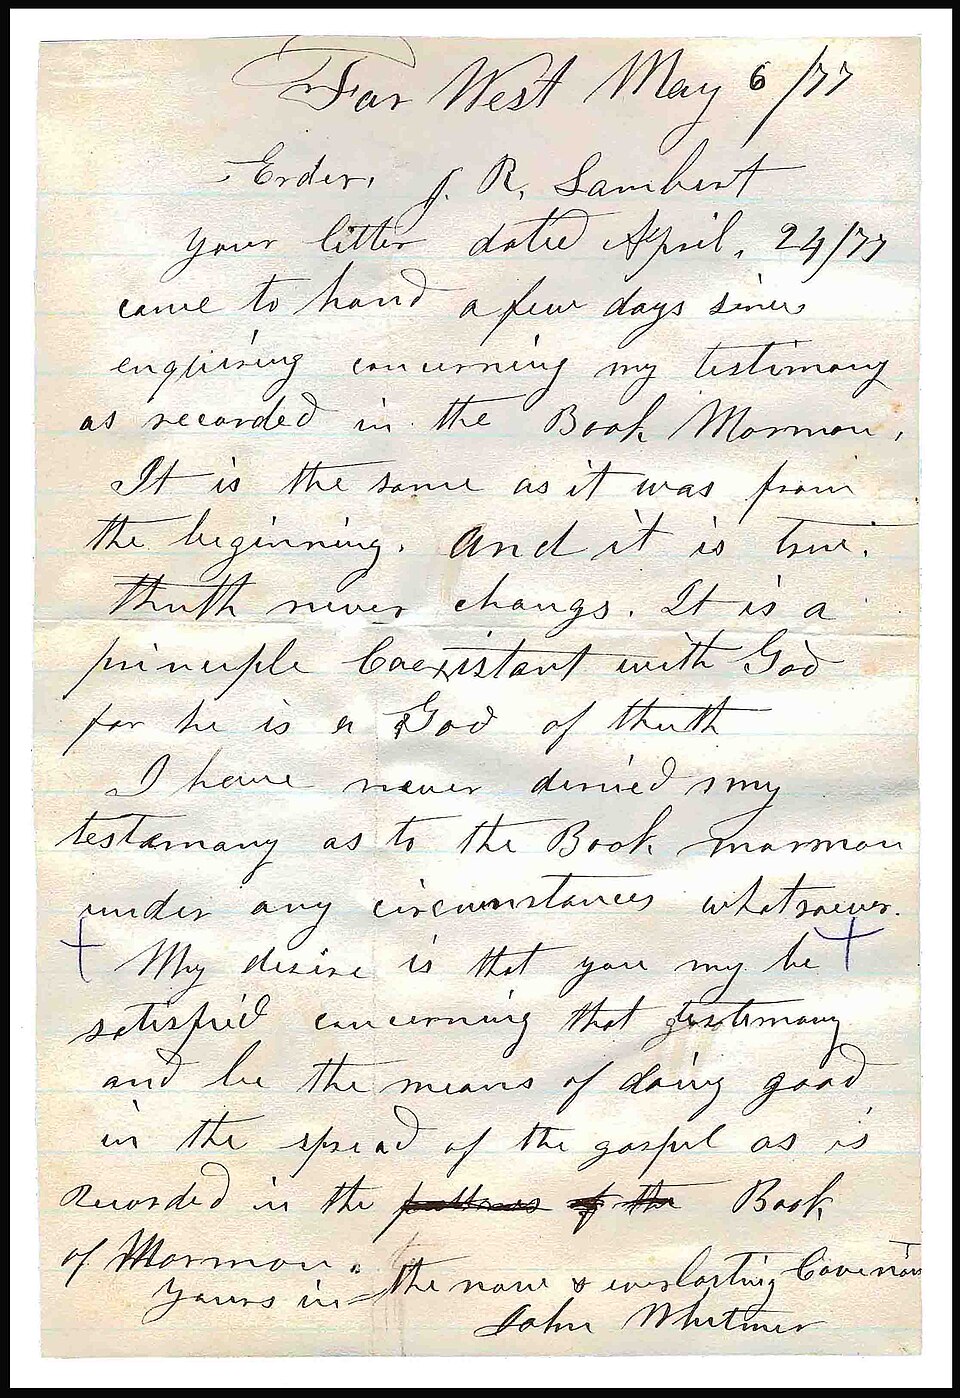 Far West May 6/77
Erder. J. R. Lambert
your litter dated April, 24/77
came to hand a few days since
enquiring concerning my testimony
as recorded in the Book Mormon,
It is the same as it was from
the beginning. And it is true.
thuth never changs. It is a
principle Coexistant with God
for he is a God of thuth
I have never denied my
testamony as to the Book mormon
under any circumstances whatsoever.
My desire is that you my be
satisfied concerning that testimony
and be the means of doing good
in the spread of the gospel as is
Recorded in the of the Book
of Mormon.
Yours in the new & everlasting Covenant
John Whitmer